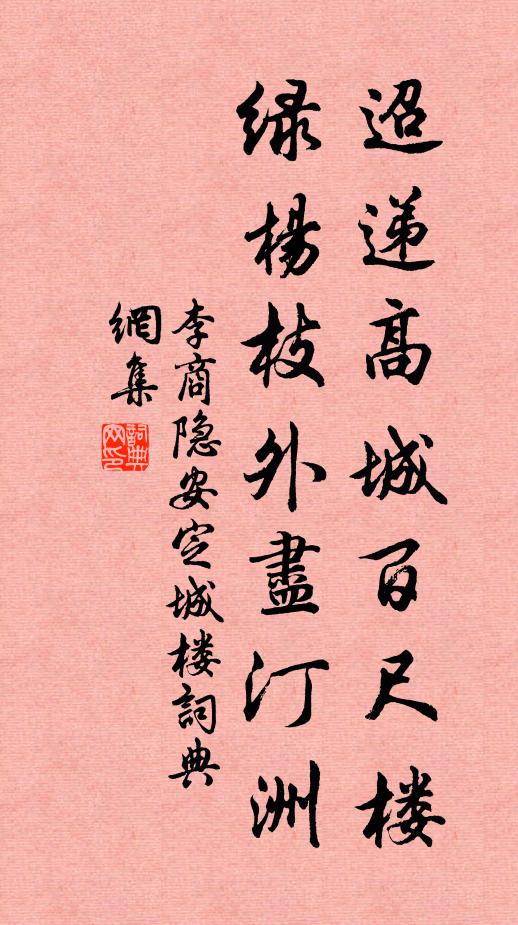 迢递高城百尺楼
绿楊枝外盡汀洲
李商隐安定城楼詞典
網集
詞典
网印